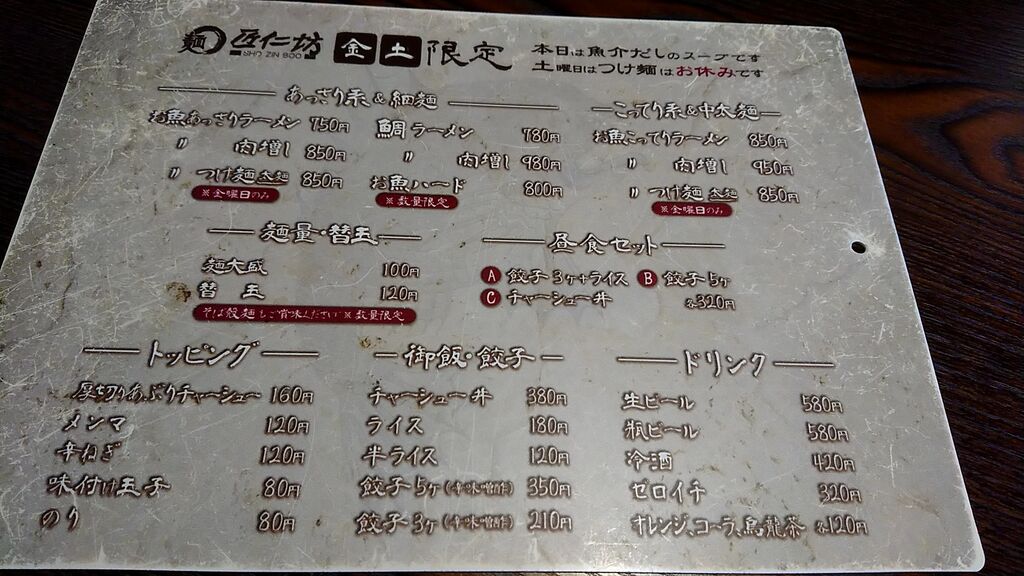 麺 匠仁坊 SHO ZIN BOO 金 土 限定
本日は魚介だしのスープです
土曜日はつけ麺はお休みです
あっさり系&細麺
お魚あっさりラーメン 750円
〃 肉増し 850円
〃 つけ麺 850円
※金曜日のみ
鯛ラーメン 780円
〃 肉増し 980円
お魚ハード 800円
※数量限定
こってり系&中太麺
お魚こってりラーメン 850円
〃 肉増し 950円
〃 つけ麺 850円
※金曜日のみ
麺量・替玉
麺大盛 100円
替玉 120円
そば殻麺もご賞味ください ※数量限定
昼食セット
A 餃子3ケ+ライス B 餃子5ケ
C チャーシュー丼 各320円
トッピング
厚切りあぶりチャーシュー 160円
メンマ 120円
辛ねぎ 120円
味付け玉子 80円
のり 80円
御飯・餃子
チャーシュー丼 380円
ライス 180円
半ライス 120円
餃子5ケ(辛味噌付) 350円
餃子3ケ(辛味噌付) 210円
ドリンク
生ビール 580円
瓶ビール 580円
冷酒 420円
ゼロイチ 320円
オレンジ、コーラ、烏龍茶 各120円